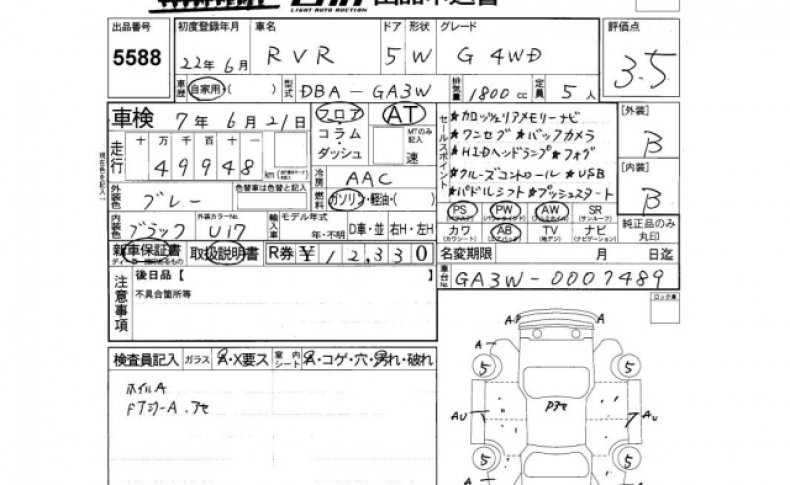 LIGHT AUTO AUCTION 出品申込書
出品番号 初度登録年月 車名 ドア 形状 グレード 評価点
5588 22年 6月 RVR 5 W G 4WD 3.5
車歴 自家用・( ) 型式 DBA-GA3W 排気量 1800cc 定員 5人
車検 7年 6月 21日 フロア・コラム・ダッシュ AT MTのみ記入 速
セールスポイント
★カロッツェリアメモリーナビ
★ワンセグ ★バックカメラ
★HIDヘッドランプ ★フォグ
★クルーズコントロール ★USB
★パドルシフト ★プッシュスタート
[外装] B
[内装] B
走行 十 万 千 百 十 一
49948 km
冷房 AAC
外装色 ブレー 色替車は色替と記入 燃料 ガソリン・軽油・( )
PS PW AW SR (サンルーフ)
内装色 ブラック 外装カラーNo. U17 輸入車 モデル年式 年・不明 D車・並 右H・左H
カワ (カワシート) AB (エアバッグ) TV (地デジ) ナビ (ナビゲーション)
純正品のみ丸印
新車保証書 取扱説明書 R券 ¥ 12,330 名変期限 月 日迄
注意事項 後日品【
不具合箇所等
車台No. GA3W-0007489
ロック車
検査員記入 ガラス A・X要ス 室内シート A・コゲ・穴・汚れ・破れ
ホイルA
ドアミラーA.アセ
A A
A
5 5
AU アセ AU
5 5
現在色を記入